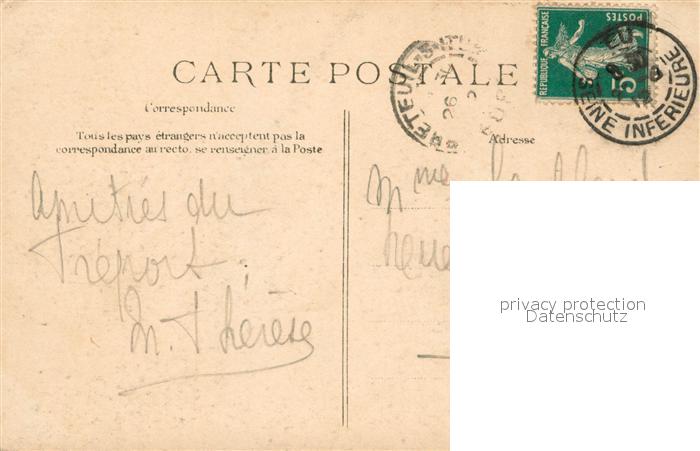 CARTE POSTALE
Correspondance
Tous les pays étrangers n'acceptent pas la
correspondance au recto, se renseigner à la Poste
Adresse
REPUBLIQUE FRANÇAISE
POSTES
5
EU
SEINE INFERIEURE
BRETEUIL-S-ITON
26
EURE
Amitiés du
Tréport,
M. Thérèse
Mme
privacy protection
Datenschutz